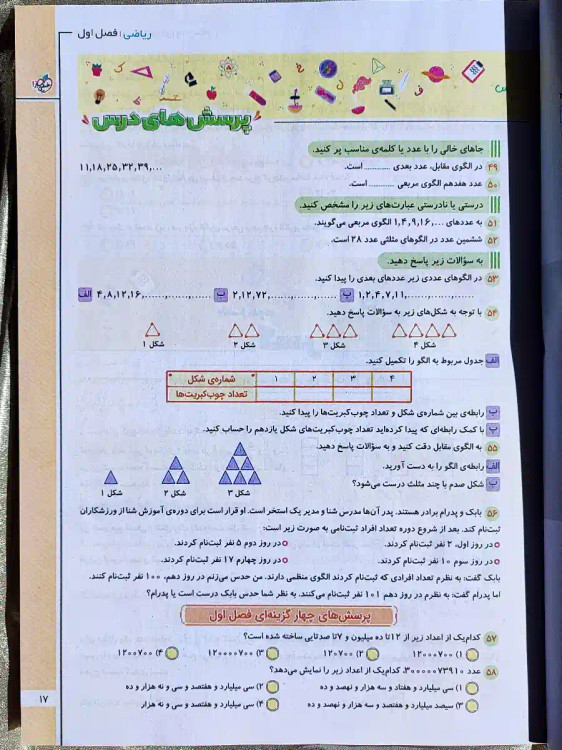 ریاضی | فصل اول
پرسش‌های درس
جاهای خالی را با عدد یا کلمه‌ی مناسب پر کنید.
۴۹ در الگوی مقابل، عدد بعدی ............ است. ۱۱,۱۸,۲۵,۳۲,۳۹,...
۵۰ عدد هفدهم الگوی مربعی ............ است.
درستی یا نادرستی عبارت‌های زیر را مشخص کنید.
۵۱ به عددهای ...,۱,۴,۹,۱۶ الگوی مربعی می‌گویند.
۵۲ ششمین عدد در الگوهای مثلثی عدد ۲۸ است.
به سؤالات زیر پاسخ دهید.
۵۳ در الگوهای عددی زیر عددهای بعدی را پیدا کنید.
الف ۴,۸,۱۲,۱۶,......,......,...... ب ۲,۱۲,۷۲,......,......,...... پ ۱,۲,۴,۷,۱۱,......,......,......
۵۴ با توجه به شکل‌های زیر به سؤالات پاسخ دهید.
شکل ۱ شکل ۲ شکل ۳ شکل ۴
الف جدول مربوط به الگو را تکمیل کنید.
شماره‌ی شکل ۱ ۲ ۳ ۴
تعداد چوب‌کبریت‌ها
ب رابطه‌ی بین شماره‌ی شکل و تعداد چوب‌کبریت‌ها را پیدا کنید.
پ با کمک رابطه‌ای که پیدا کرده‌اید تعداد چوب‌کبریت‌های شکل یازدهم را حساب کنید.
۵۵ به الگوی مقابل دقت کنید و به سؤالات پاسخ دهید.
الف رابطه‌ی الگو را به دست آورید.
ب شکل صدم با چند مثلث درست می‌شود؟
شکل ۱ شکل ۲ شکل ۳
۵۶ بابک و پدرام برادر هستند. پدر آن‌ها مدرس شنا و مدیر یک استخر است. او قرار است برای دوره‌ی آموزش شنا از ورزشکاران
ثبت‌نام کند. بعد از شروع دوره تعداد افراد ثبت‌نامی به صورت زیر است:
در روز اول، ۲ نفر ثبت‌نام کردند. در روز دوم ۵ نفر ثبت‌نام کردند.
در روز سوم ۱۰ نفر ثبت‌نام کردند. در روز چهارم ۱۷ نفر ثبت‌نام کردند.
بابک گفت: به نظرم تعداد افرادی که ثبت‌نام کردند الگوی منظمی دارند. من حدس می‌زنم در روز دهم، ۱۰۰ نفر ثبت‌نام کنند.
اما پدرام گفت: به نظرم در روز دهم ۱۰۱ نفر ثبت‌نام می‌کنند. به نظر شما حدس بابک درست است یا پدرام؟
پرسش‌های چهار گزینه‌ای فصل اول
۵۷ کدام‌یک از اعداد زیر از ۱۲تا ده میلیون و ۷تا صدتایی ساخته شده است؟
۱) ۱۲۰۰۰۷۰۰ ۲) ۱۲۰۷۰۰ ۳) ۱۲۰۰۰۰۷۰۰ ۴) ۱۲۰۰۷۰۰
۵۸ عدد ۳۰۰۰۰۷۳۹۱۰، کدام‌یک از اعداد زیر را نمایش می‌دهد؟
۱) سی میلیارد و هفتاد و سه هزار و نهصد و ده ۲) سی میلیارد و هفتصد و سی و نه هزار و ده
۳) سیصد میلیارد و هفتصد و سه هزار و نهصد و ده ۴) سی میلیارد و هفتصد و سی و نه هزار
۱۷